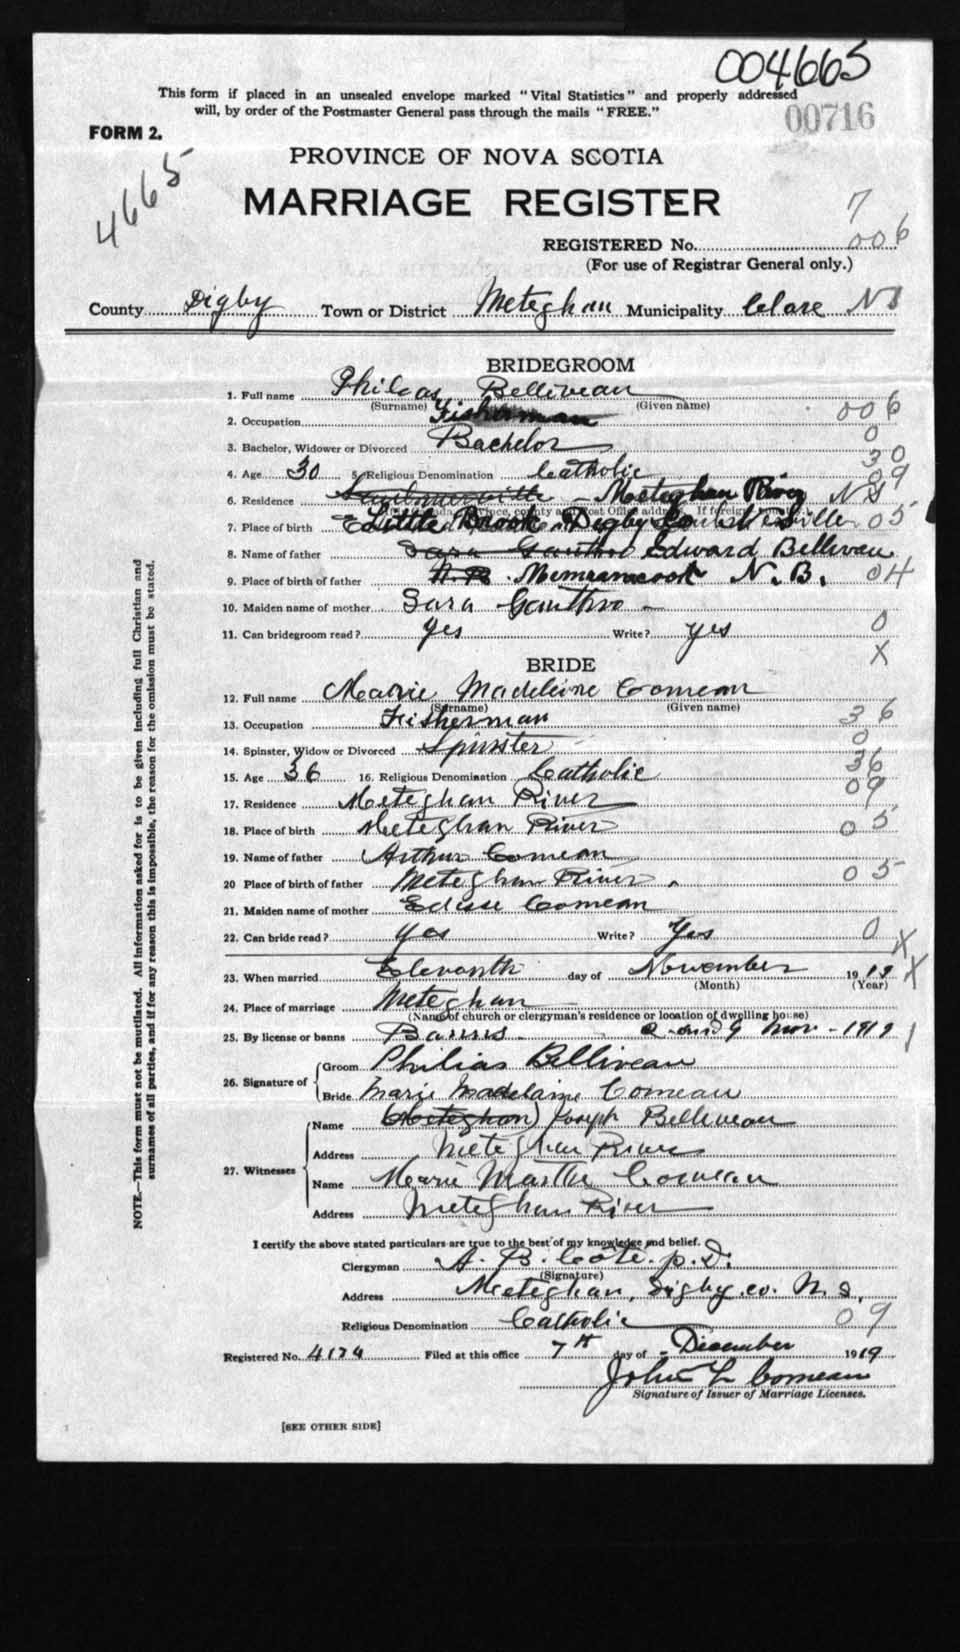 004665
This form if placed in an unsealed envelope marked "Vital Statistics" and properly addressed
will, by order of the Postmaster General pass through the mails "FREE."
00716
FORM 2.
4665
PROVINCE OF NOVA SCOTIA
MARRIAGE REGISTER
7
REGISTERED No. 006
(For use of Registrar General only.)
County Digby Town or District Meteghan Municipality Clare NS
BRIDEGROOM
1. Full name Phileas Belliveau
(Surname) (Given name)
2. Occupation Fisherman 006
3. Bachelor, Widower or Divorced Bachelor 0
4. Age 30 5. Religious Denomination Catholic 30
09
6. Residence Meteghan River NS
7. Place of birth Little Brook Digby Co 05
8. Name of father Edward Belliveau
9. Place of birth of father Memramcook N.B. 04
10. Maiden name of mother Sara
11. Can bridegroom read? yes Write? yes 0
X
BRIDE
12. Full name Marie Madeleine Comeau
(Surname) (Given name)
13. Occupation Fisherman 36
14. Spinster, Widow or Divorced Spinster 0
15. Age 36 16. Religious Denomination Catholic 36
17. Residence Meteghan River 09
18. Place of birth Meteghan River 05
19. Name of father Arthur Comeau
20 Place of birth of father Meteghan River 05
21. Maiden name of mother Comeau
22. Can bride read? yes Write? Yes 0 X
23. When married day of November 1919 X
(Month) (Year)
24. Place of marriage Meteghan
(Name of church or clergyman's residence or location of dwelling house)
25. By license or banns Banns 2 and 9 Nov - 1919
26. Signature of Groom Philias Belliveau
Bride Marie Madelaine Comeau
27. Witnesses Name (Meteghan) Joseph Belliveau
Address Meteghan River
Name Marie Marthe Comeau
Address Meteghan River
I certify the above stated particulars are true to the best of my knowledge and belief.
Clergyman A. B. Côté. p.d.
(Signature)
Address Meteghan, Digby co. N.S,
Religious Denomination Catholic 09
Registered No. 4174 Filed at this office 7th day of December 1919
John L Comeau
Signature of Issuer of Marriage Licenses.
[SEE OTHER SIDE]
NOTE.—This form must not be mutilated. All information asked for is to be given including full Christian and
surnames of all parties, and if for any reason this is impossible, the reason for the omission must be stated.